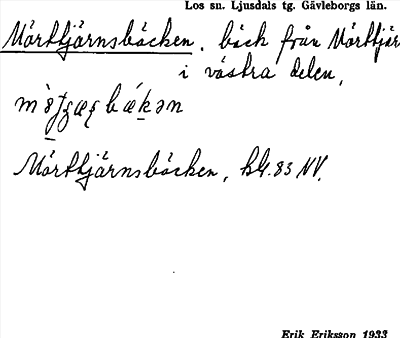 Los sn. Ljusdals tg. Gävleborgs län.
Mörttjärnsbäcken, bäck från Mörttjär
i västra delen,
Mörttjärnsbäcken, hbl. 83 NV.
Erik Eriksson 1933